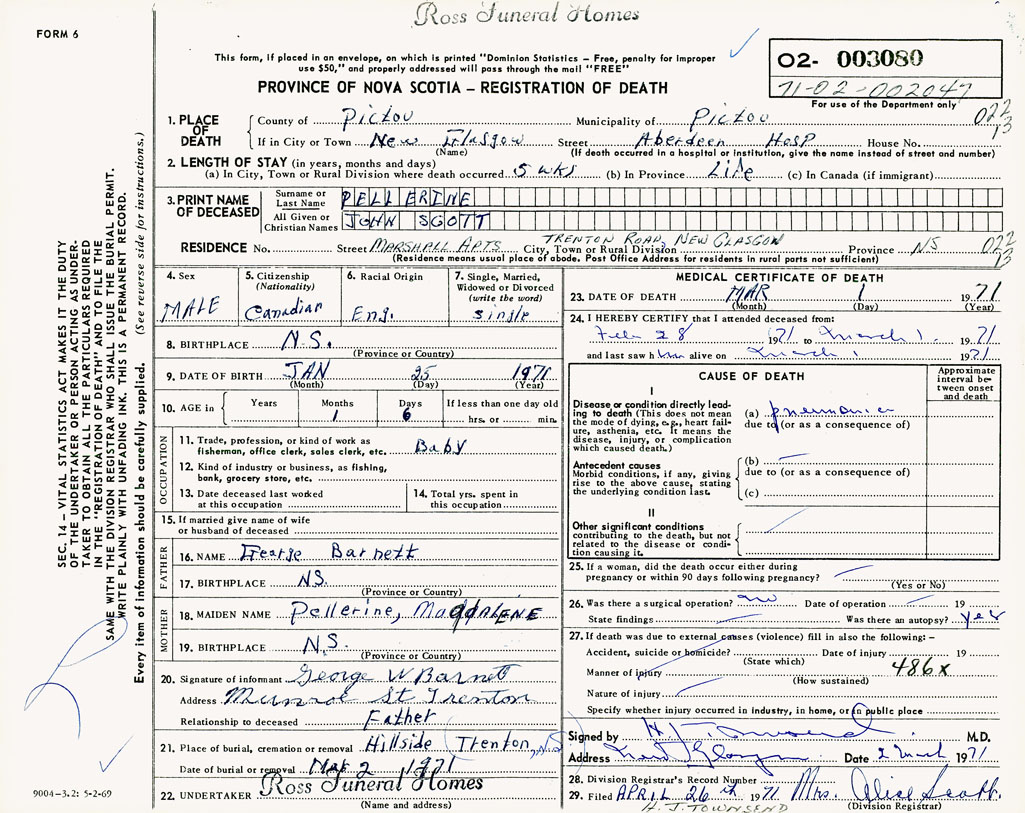 Ross Funeral Homes
FORM 6
This form, if placed in an envelope, on which is printed "Dominion Statistics – Free, penalty for improper
use $50," and properly addressed will pass through the mail "FREE"
PROVINCE OF NOVA SCOTIA – REGISTRATION OF DEATH
02- 003080
71-02-002047
For use of the Department only
1. PLACE OF DEATH County of Pictou Municipality of Pictou 022
If in City or Town New Glasgow Street Aberdeen Hosp House No. 13
(Name) (If death occurred in a hospital or institution, give the name instead of street and number)
2. LENGTH OF STAY (in years, months and days)
(a) In City, Town or Rural Division where death occurred 5 wks (b) In Province Life (c) In Canada (if immigrant)
3. PRINT NAME OF DECEASED Surname or Last Name PELLERINE
All Given or Christian Names JOHN SCOTT
RESIDENCE No. Street MARSHALL APTS City, Town or Rural Division TRENTON ROAD, NEW GLASGOW Province NS 022 13
(Residence means usual place of abode. Post Office Address for residents in rural parts not sufficient)
4. Sex MALE
5. Citizenship (Nationality) Canadian
6. Racial Origin Eng.
7. Single, Married, Widowed or Divorced (write the word) single
8. BIRTHPLACE N.S.
(Province or Country)
9. DATE OF BIRTH JAN 25 1971
(Month) (Day) (Year)
10. AGE in Years Months 1 Days 6 If less than one day old hrs. or min.
OCCUPATION
11. Trade, profession, or kind of work as
fisherman, office clerk, sales clerk, etc. Baby
12. Kind of industry or business, as fishing,
bank, grocery store, etc.
13. Date deceased last worked
at this occupation
14. Total yrs. spent in
this occupation
15. If married give name of wife
or husband of deceased
FATHER
16. NAME George Barnett
17. BIRTHPLACE NS.
(Province or Country)
MOTHER
18. MAIDEN NAME Pellerine, MagDALENE
19. BIRTHPLACE N.S.
(Province or Country)
20. Signature of informant George W Barnett
Address Munroe St Trenton
Relationship to deceased Father
21. Place of burial, cremation or removal Hillside Trenton, N.S
Date of burial or removal Mar 2 1971
22. UNDERTAKER Ross Funeral Homes
(Name and address)
MEDICAL CERTIFICATE OF DEATH
23. DATE OF DEATH MAR 1 1971
(Month) (Day) (Year)
24. I HEREBY CERTIFY that I attended deceased from:
Feb 28 1971 to March 1. 1971
and last saw him alive on March 1 1971
CAUSE OF DEATH
Approximate
interval be-
tween onset
and death
I
Disease or condition directly lead-
ing to death (This does not mean
the mode of dying, e.g., heart fail-
ure, asthenia, etc. It means the
disease, injury, or complication
which caused death.)
(a) pneumonia
due to (or as a consequence of)
Antecedent causes
Morbid conditions, if any, giving
rise to the above cause, stating
the underlying condition last.
(b)
due to (or as a consequence of)
(c)
II
Other significant conditions
contributing to the death, but not
related to the disease or condi-
tion causing it.
25. If a woman, did the death occur either during
pregnancy or within 90 days following pregnancy?
(Yes or No)
26. Was there a surgical operation? no Date of operation 19
State findings Was there an autopsy? yes
27. If death was due to external causes (violence) fill in also the following: –
Accident, suicide or homicide? Date of injury 19
(State which)
Manner of injury 486X
(How sustained)
Nature of injury
Specify whether injury occurred in industry, in home, or in public place
Signed by H. J. Townsend M.D.
Address New Glasgow Date 2 March 1971
28. Division Registrar's Record Number
29. Filed APRIL 26th 1971 Mrs. Alice Scott.
H. J. TOWNSEND (Division Registrar)
SEC. 14 – VITAL STATISTICS ACT MAKES IT THE DUTY
OF THE UNDERTAKER OR PERSON ACTING AS UNDER-
TAKER TO OBTAIN ALL THE PARTICULARS REQUIRED
IN THE "REGISTRATION OF DEATH" AND TO FILE THE
SAME WITH THE DIVISION REGISTRAR WHO SHALL ISSUE THE BURIAL PERMIT.
WRITE PLAINLY WITH UNFADING INK. THIS IS A PERMANENT RECORD.
Every item of information should be carefully supplied. (See reverse side for instructions.)
9004-3.2: 5-2-69